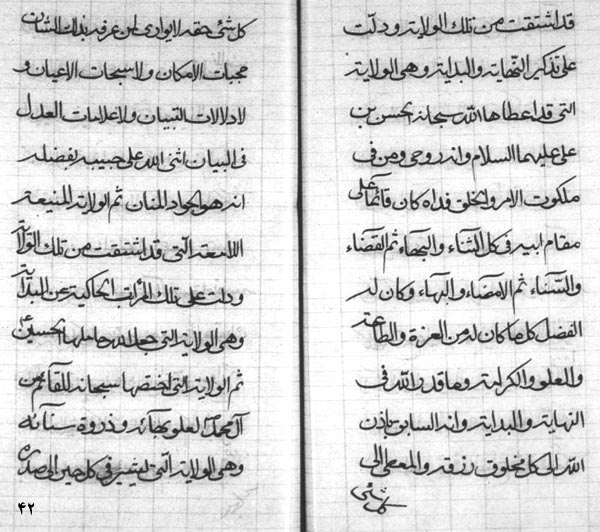 قد اشتقت من تلك الولایة و دلت
علی تذکیر النهایة و البدایة و هی الولایة
التی قد اعطاها الله سبحانه الحسن بن
علی علیهما السلام و انه روحی و من فی
ملکوت الامر و الخلق فداه کان قائما علی
مقام ابیه فی کل الثناء و البهاء ثم القضاء
و السناء ثم الامضاء و البهاء و کان له
الفضل کلما کان له من العزة و الطاعة
و العلو و الکرامة و ما قدر الله فی
النهایة و البدایة و انه السابق باذن
الله الی کل مخلوق رزقه و المعطی الی
کل شئ
کل شئ حقه لا یواری لمن عرفه بذلک الشان
حجبات الامکان و لا سبحات الاعیان و
لا دلالات التبیان و لا علامات العدل
فی البیان اثنی الله علی حبیبه بفضله
انه هو الجواد المنان ثم الولایة المنیعة
اللامعة التی قد اشتقت من تلك الولایة
و دلت علی تلك المراتب الحاکیة عن البدایة
و هی الولایة التی جعل الله حاملها الحسین ع
ثم الولایة التی اختصها سبحانه للقائم من
آل محمد لعلو بهائه و ذروة سنائه
و هی الولایة التی یشیر فی کل حین الی صدره
۴۲